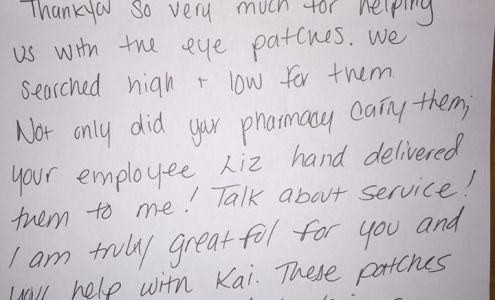 Thankyou so very much for helping
us with the eye patches. We
searched high + low for them.
Not only did your pharmacy carry them;
your employee Liz hand delivered
them to me! Talk about service!
I am truly greatful for you and
your help with Kai. These patches